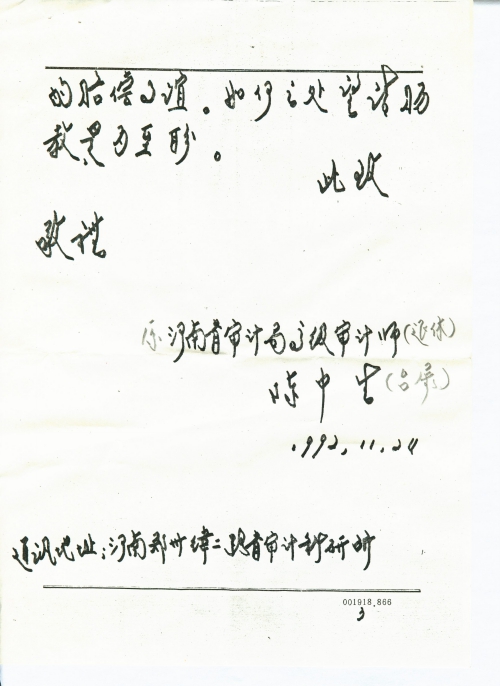 的赔偿事谊。如何之处望请赐
教是为至盼。
此致
敬礼
原河南省审计局高级审计师(退休)
陈中生(台属)
1992.11.24
通讯地址:河南郑州纬二路省审计科研所
001918.866
3